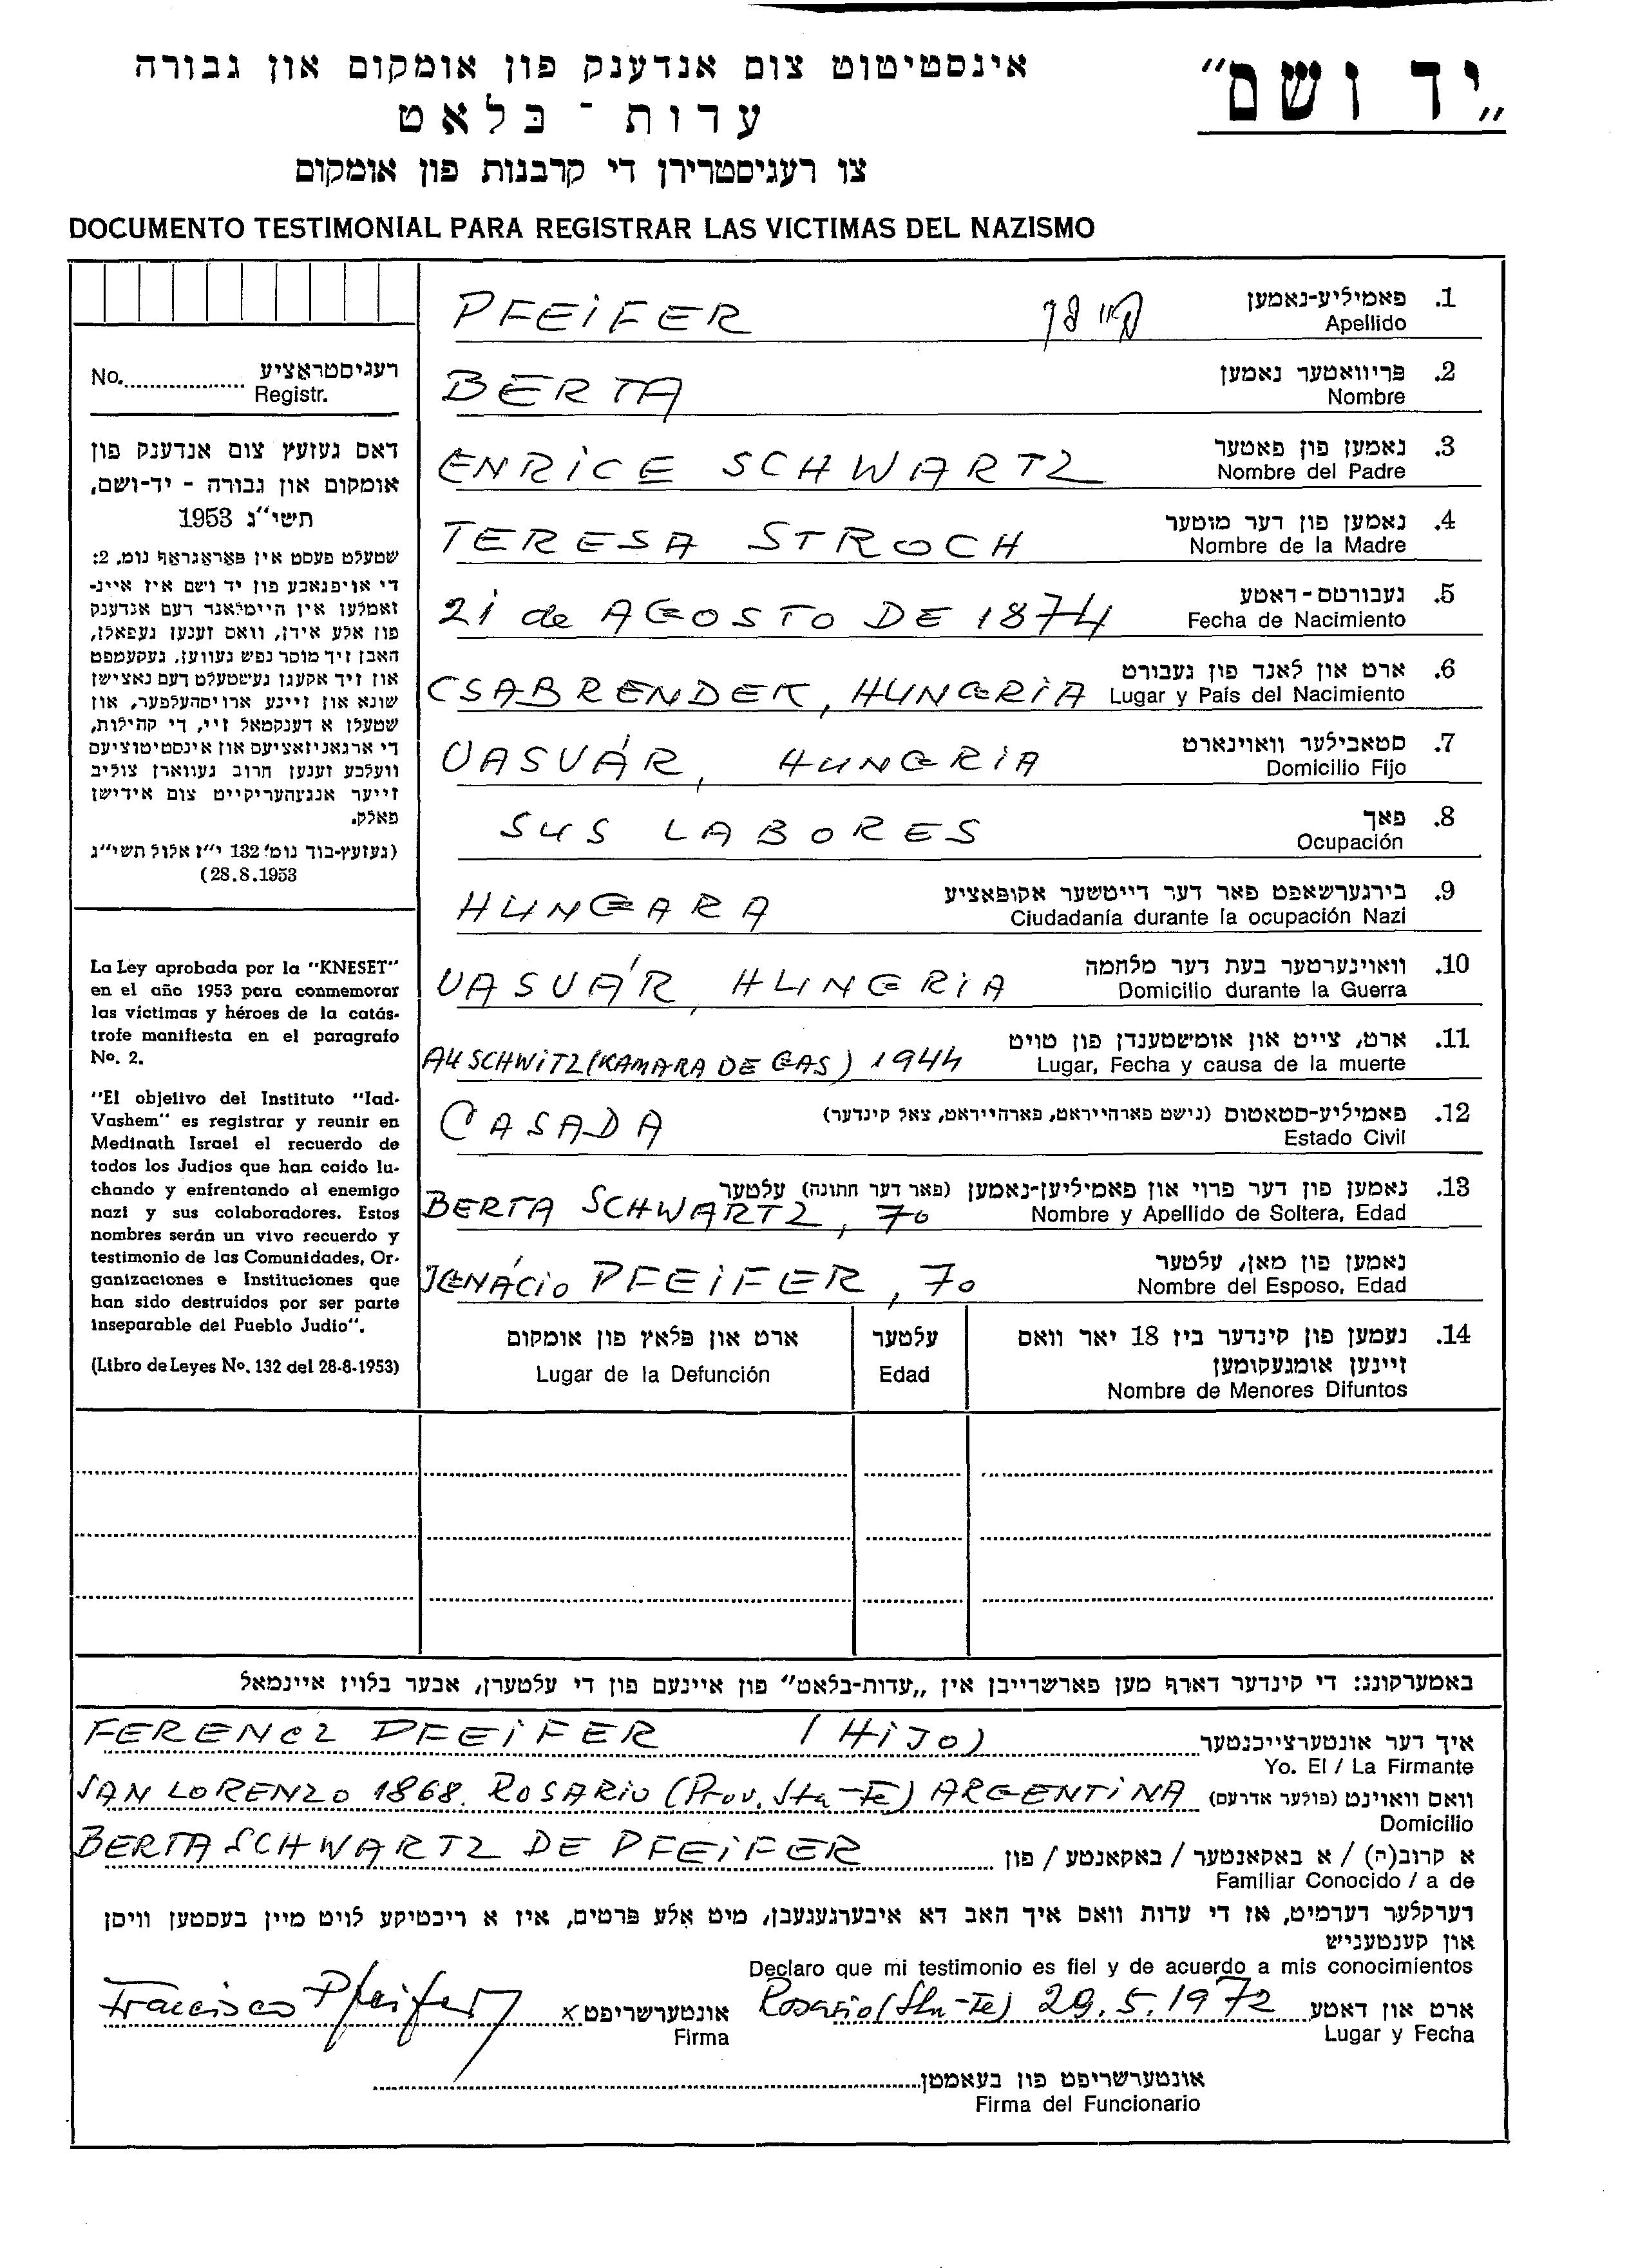 „יד ושם"
אינסטיטוט צום אנדענק פון אומקום און גבורה
עדות - בלאט
צו רעגיסטרירן די קרבנות פון אומקום
DOCUMENTO TESTIMONIAL PARA REGISTRAR LAS VICTIMAS DEL NAZISMO
No. רעגיסטראציע
Registr.
דאס געזעץ צום אנדענק פון
אומקום און גבורה - יד-ושם,
תשי"ג 1953
שטעלט פעסט אין פאראגראף נומ. 2:
די אויפגאבע פון יד ושם איז איינ-
זאמלען אין היימלאנד דעם אנדענק
פון אלע אידן, וואס זענען געפאלן,
האבן זיך מוסר נפש געווען, געקעמפט
און זיך אקעגן געשטעלט דעם נאצישן
שונא און זיינע ארויסהעלפער, און
שטעלן א דענקמאל זיי, די קהילות,
די ארגאניזאציעס און אינסטיטוציעס
וועלכע זענען חרוב געווארן צוליב
זייער אנגעהעריקייט צום אידישן
פאלק.
(געזעץ-בוך נומ' 132 י"ז אלול תשי"ג
28.8.1953)
La Ley aprobada por la "KNESET"
en el año 1953 para conmemorar
las víctimas y héroes de la catás-
trofe manifiesta en el paragrafo
No. 2.
"El objetivo del Instituto "Iad-
Vashem" es registrar y reunir en
Medinath Israel el recuerdo de
todos los Judios que han caido lu-
chando y enfrentando al enemigo
nazi y sus colaboradores. Estos
nombres serán un vivo recuerdo y
testimonio de las Comunidades, Or-
ganizaciones e Instituciones que
han sido destruidos por ser parte
inseparable del Pueblo Judio".
(Libro de Leyes No. 132 del 28-8-1953)
1. פאמיליע-נאמען
Apellido
PFEiFER
2. פריוואטער נאמען
Nombre
BERTA
3. נאמען פון פאטער
Nombre del Padre
ENRiCE SCHWARTZ
4. נאמען פון דער מוטער
Nombre de la Madre
TERESA STROCH
5. געבורטס-דאטע
Fecha de Nacimiento
21 de AGOSTO DE 1874
6. ארט און לאנד פון געבורט
Lugar y País del Nacimiento
CSABRENDEK, HUNGRiA
7. סטאבילער וואוינארט
Domicilio Fijo
VASVÁR, HUNGRiA
8. פאך
Ocupación
SUS LABORES
9. בירגערשאפט פאר דער דייטשער אקופאציע
Ciudadanía durante la ocupación Nazi
HUNGARA
10. וואוינערטער בעת דער מלחמה
Domicilio durante la Guerra
VASVÁR, HUNGRiA
11. ארט, צייט און אומשטענדן פון טויט
Lugar, Fecha y causa de la muerte
AUSCHWiTZ (KAMARA DE GAS) 1944
12. פאמיליע-סטאטוס (נישט פארהייראט, פארהייראט, צאל קינדער)
Estado Civil
CASADA
13. נאמען פון דער פרוי און פאמיליען-נאמען (פאר דער חתונה) עלטער
Nombre y Apellido de Soltera, Edad
BERTA SCHWARTZ, 70
נאמען פון מאן, עלטער
Nombre del Esposo, Edad
IGNÁCiO PFEiFER, 70
14. נעמען פון קינדער ביז 18 יאר וואס
זיינען אומגעקומען
Nombre de Menores Difuntos
עלטער
Edad
ארט און פלאץ פון אומקום
Lugar de la Defunción
באמערקונג: די קינדער דארף מען פארשרייבן אין „עדות-בלאט" פון איינעם פון די עלטערן, אבער בלויז איינמאל
איך דער אונטערצייכנטער
Yo. El / La Firmante
FERENCZ PFEiFER (HiJO)
וואס וואוינט (פולער אדרעס)
Domicilio
SAN LORENZO 1868. ROSARiO (Prov. Sta-Fe) ARGENTiNA
א קרוב(ה) / א באקאנטער / באקאנטע / פון
Familiar Conocido / a de
BERTA SCHWARTZ DE PFEiFER
דערקלער דערמיט, אז די עדות וואס איך האב דא איבערגעגעבן, מיט אלע פרטים, איז א ריכטיקע לויט מיין בעסטען וויסן
און קענטעניש
Declaro que mi testimonio es fiel y de acuerdo a mis conocimientos
ארט און דאטע
Lugar y Fecha
Rosario (Sta-Fe) 29.5.1972
אונטערשריפט x
Firma
Francisco Pfeifer
אונטערשריפט פון בעאמטן
Firma del Funcionario